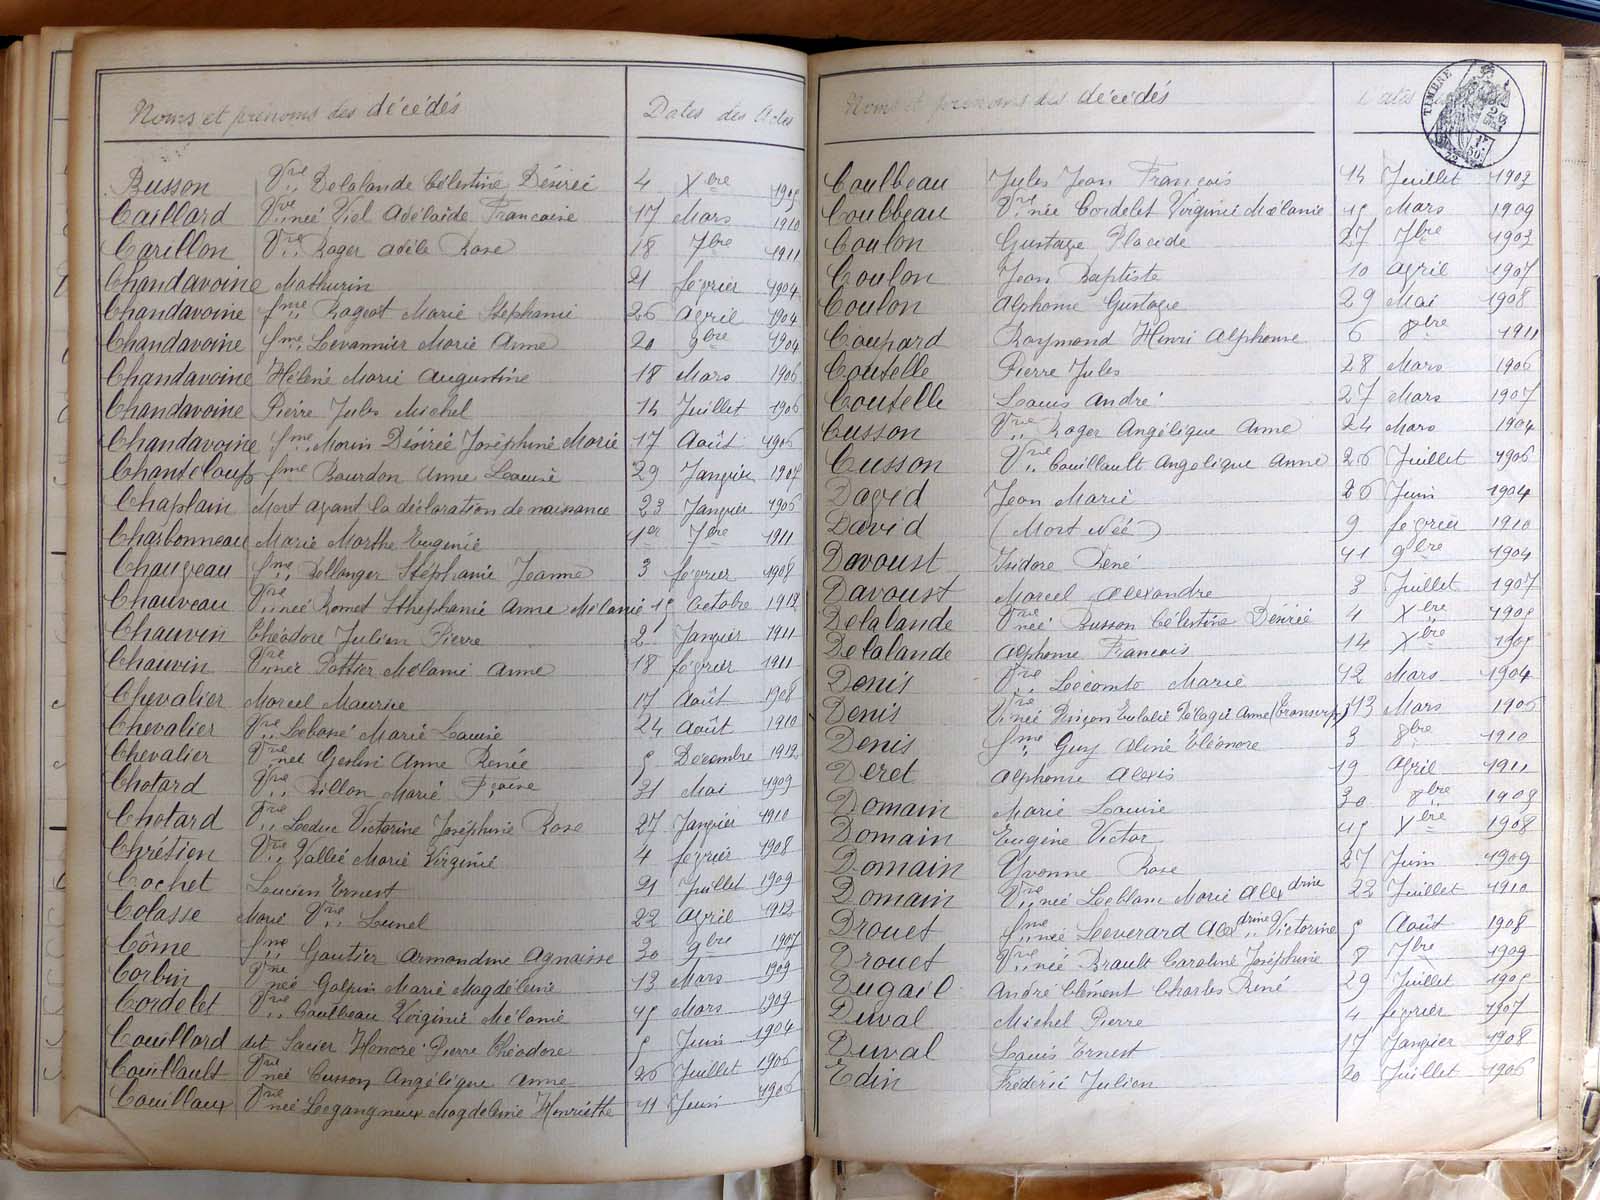 Noms et prénoms des décédés Dates des Actes
Busson Vve Delalande Célestine Désirée 4 Xbre 1905
Caillard Vve née Viel Adélaïde Françoise 17 Mars 1910
Carillon Vve Roger Adèle Rose 18 7bre 1911
Chandavoine Mathurin 21 février 1904
Chandavoine fme Rageot Marie Stéphanie 26 avril 1904
Chandavoine fme Levannier Marie Anne 20 9bre 1904
Chandavoine Hélène Marie Augustine 18 Mars 1906
Chandavoine Pierre Jules Michel 14 Juillet 1906
Chandavoine fme Morin Désirée Joséphine Marie 17 Août 1906
Chanteloup fme Bourdon Anne Louise 29 Janvier 1907
Chaplain Mort avant la déclaration de naissance 23 Janvier 1906
Charbonneau Marie Marthe Eugénie 1er 7bre 1911
Chauveau fme Bellanger Stéphanie Jeanne 3 février 1908
Chauveau Vve née Romet Sthéphanie Anne Mélanie 15 Octobre 1912
Chauvin Théodore Julien Pierre 2 Janvier 1911
Chauvin Vve née Pottier Mélanie Anne 18 février 1911
Chevalier Marcel Maurice 17 Août 1908
Chevalier Vve Lebossé Marie Louise 24 Août 1910
Chevalier Vve née Geslin Anne Renée 5 Décembre 1912
Chotard Vve Dillon Marie 31 Mai 1909
Chotard Vve Leduc Victorine Joséphine Rose 27 Janvier 1910
Chrétien Vve Vallée Marie Virginie 4 février 1908
Cochet Lucien Ernest 21 Juillet 1909
Colasse Marie Vve Lunel 22 avril 1912
Côme fme Gautier Armandine Agnaisse 30 9bre 1907
Corbin Vve née Galpin Marie Magdeleine 13 Mars 1909
Cordelet Vve Coulbeau Virginie Mélanie 15 Mars 1909
Couillard dit Sacier Honoré Pierre Théodore 5 Juin 1904
Couillault Vve née Cusson Angélique Anne 26 Juillet 1906
Couillaux Vve née Legangneux Magdeleine Henriethe 11 Juin 1906
Noms et prénoms des décédés Dates
TIMBRE
Coulbeau Jules Jean François 14 Juillet 1903
Coulbeau Vve née Cordelet Virginie Mélanie 15 Mars 1909
Coulon Gustave Placide 27 7bre 1903
Coulon Jean Baptiste 10 avril 1907
Coulon Alphonse Gustave 29 Mai 1908
Coupard Raymond Henri Alphonse 6 8bre 1911
Coutelle Pierre Jules 28 Mars 1906
Coutelle Louis André 27 Mars 1907
Cusson Vve Roger Angélique Anne 24 Mars 1904
Cusson Vve Couillault Angélique Anne 26 Juillet 1906
David Jean Marie 26 Juin 1904
David (Mort Née) 9 février 1910
Davoust Isidore René 11 9bre 1904
Davoust Marcel Alexandre 3 Juillet 1907
Delalande Vve née Busson Célestine Désirée 4 Xbre 1905
Delalande Alphonse François 14 Xbre 1905
Denis Vve Lecomte Marie 12 Mars 1904
Denis Vve née Pinçon Eulalie Pélagie Anne (transcrip) 13 Mars 1906
Denis fme Guy Aline Eléonore 3 8bre 1910
Deret Alphonse Alexis 19 avril 1911
Domain Marie Louise 30 8bre 1903
Domain Eugène Victor 15 Xbre 1908
Domain Yvonne Rose 27 Juin 1909
Domain Vve née Leblanc Marie Alexdrine 22 Juillet 1910
Drouet fme née Leverard Alexdrine Victorine 5 Août 1908
Drouet Vve née Brault Caroline Joséphine 8 7bre 1909
Dugail André Clément Charles René 29 Juillet 1905
Duval Michel Pierre 4 février 1907
Duval Louis Ernest 17 Janvier 1908
Edin Frédéric Julien 20 Juillet 1906